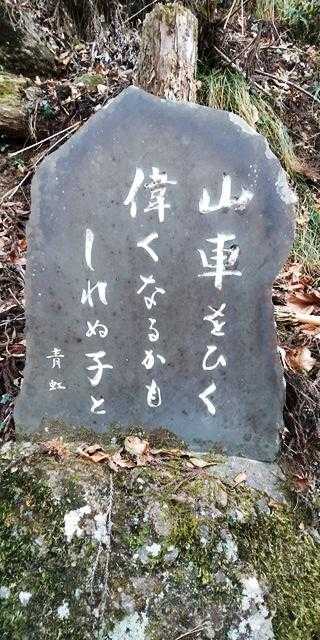 山車をひく
偉くなるかも
しれぬ子と
青虹